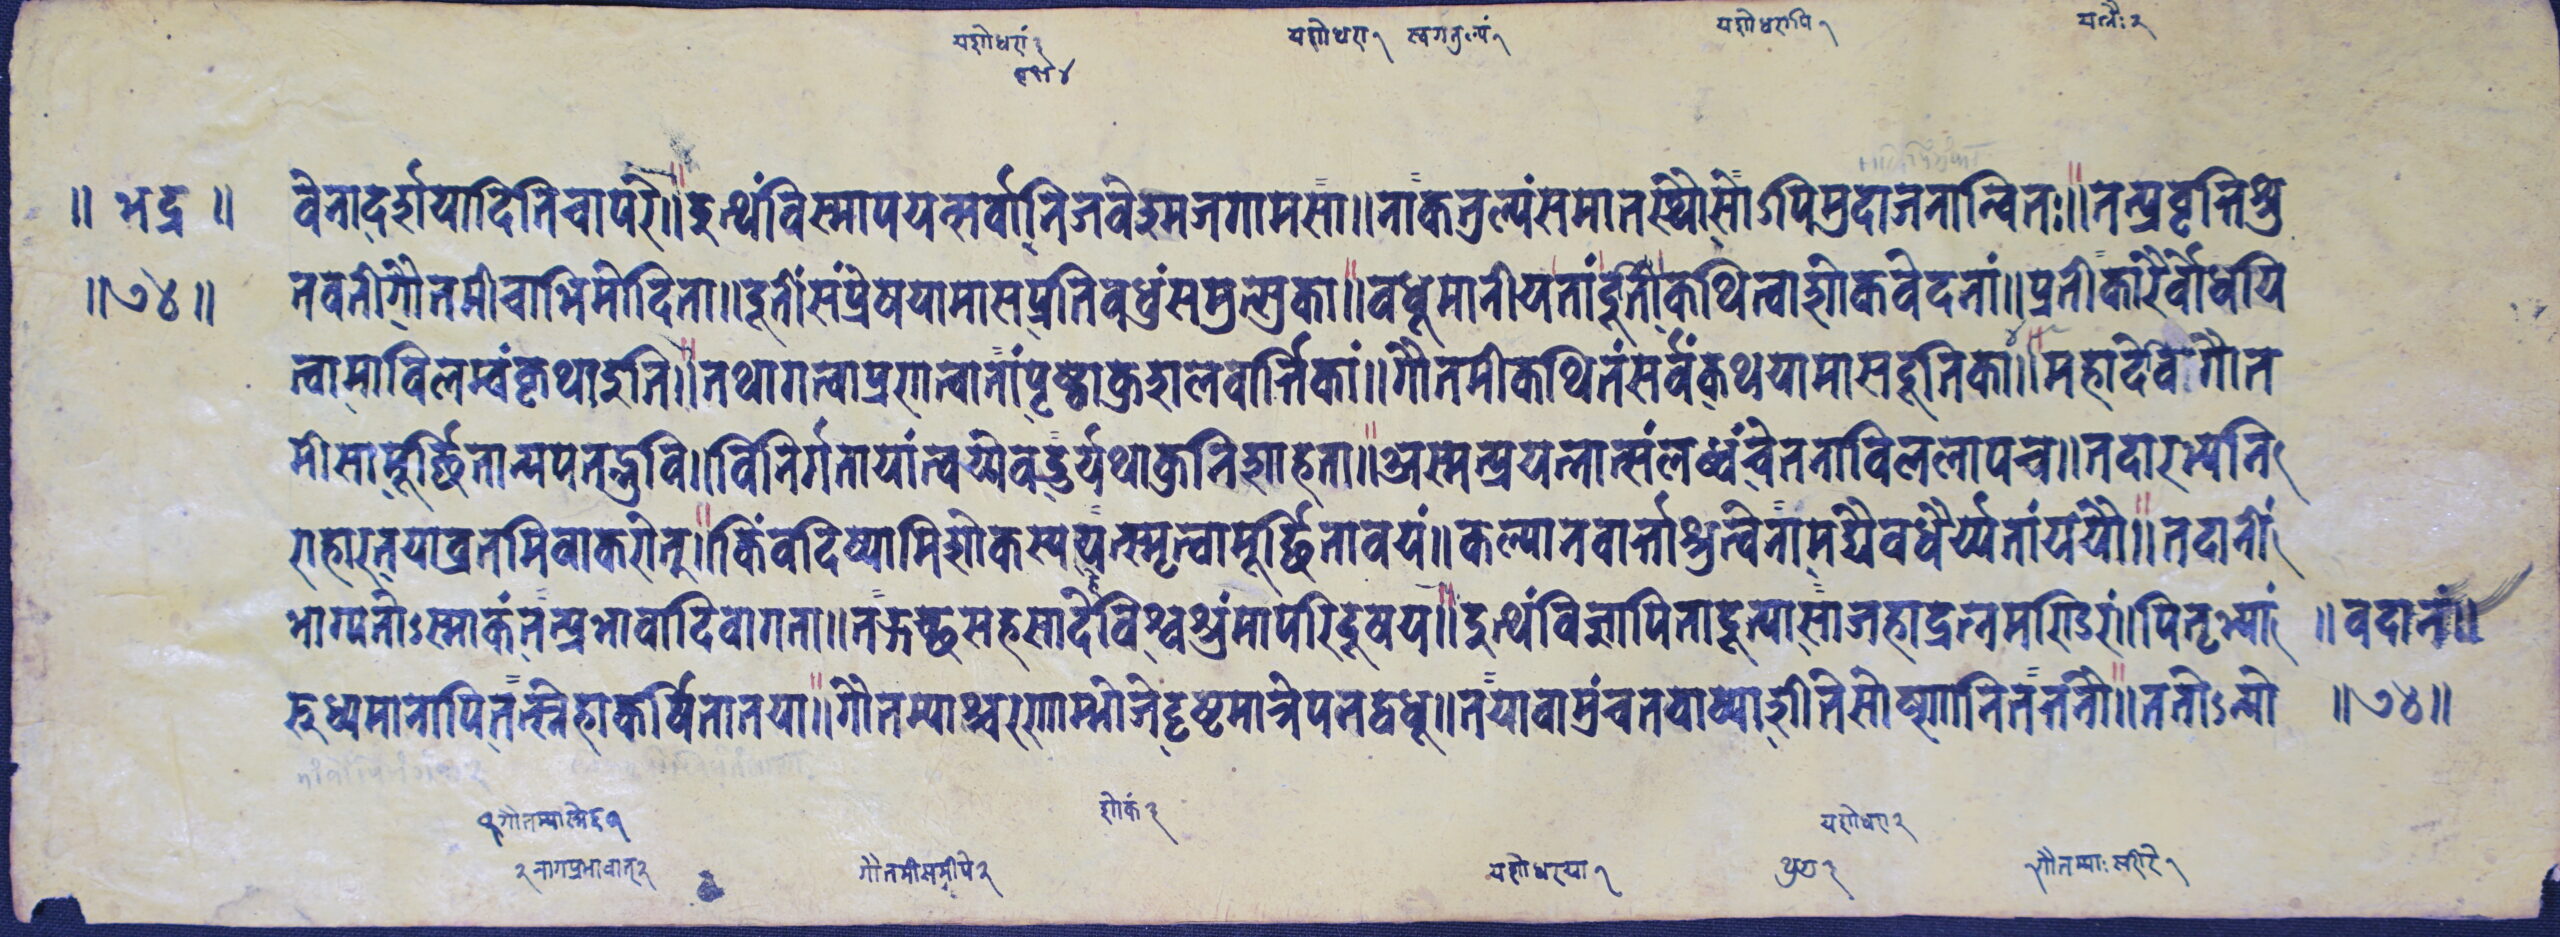 यशोधरां२
यशोधरा१ स्वर्गतुल्यं१
यशोधरापि१
यत्नैः२
॥ भद्र ॥ वेनादर्शयादितिचापरे॥इत्थंविस्मापयन्सर्वान्निजवेश्मजगामसा॥नाकतुल्यंसमातस्थौसोऽपिप्रदाजनान्वितः॥तत्प्रवृत्तिश्रु
॥७४॥ तवतीगौतमीचाभिमोदिता॥दूतींसंप्रेषयामासप्रतिवधुंसमुत्सुका॥वधूमानीयतांदूतीकथित्वाशोकवेदनां॥प्रतीकारैर्बोधयि
त्वामाविलम्वंकृथाइति॥तथागत्वाप्रणत्वातांपृष्ठाकुशलवार्त्तिकां॥गौतमीकथितंसर्वंकथयामासदूतिका॥महादेविगौत
मीसामूर्छितान्यपतद्भुवि॥विनिर्गतायांत्वय्येवद्रुर्यथाकुनिशाहता॥अस्मत्प्रयत्नात्संलब्धंचेतनाविललापच॥तदारभ्यनि
राहारन्तयाव्रतमिवाकरोत्॥किंवदिष्यामिशोकस्ययत्स्मृत्वामूर्छितावयं॥कल्यानवार्त्ताश्रुत्वैनामद्यैवधैर्य्यतांययौ॥तदानीं
भाग्यतोऽस्माकंतत्प्रभावादिवागता॥तङ्गच्छसहसादेविश्वश्रुंमापरिदूषय॥इत्थंविज्ञापितादूत्यासाजहाद्रत्नमशिऽरां॥पितृभ्यां ॥ वदानं॥
रुध्यमानापितत्स्नेहाकर्षितातया॥गौतम्याश्चरणाम्भोजेदृष्टमात्रेपतद्वधू॥तयावामुंचतवाष्पाशीतेसोष्णातितत्तनौ॥ततोऽन्यो ॥७४॥
गौतम्यास्नेह१
शोकं२
यशोधरा२
२नागप्रभावात्२
गौतमीसमीपे२
यशोधरया१
गौतम्याः सरीरे१